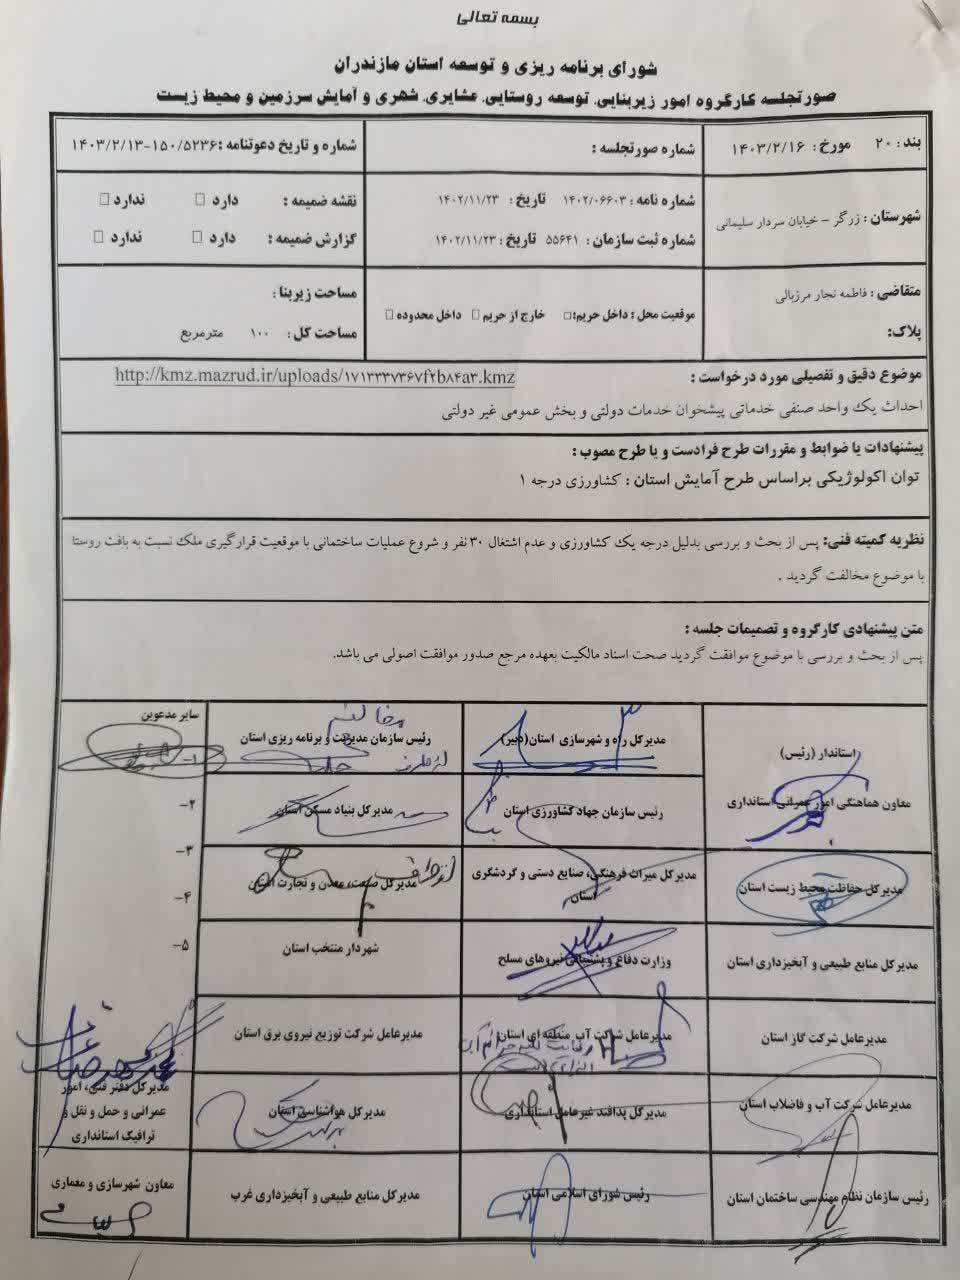 بسمه تعالی
شورای برنامه ریزی و توسعه استان مازندران
صورتجلسه کارگروه امور زیربنایی، توسعه روستایی، عشایری، شهری و آمایش سرزمین و محیط زیست
بند : ۲۰ مورخ : ۱۴۰۳/۲/۱۶
شماره صورتجلسه :
شماره و تاریخ دعوتنامه :۱۵۰/۵۲۳۶-۱۴۰۳/۲/۱۳
شهرستان : زرگر – خیابان سردار سلیمانی
شماره نامه : ۱۴۰۲/۰۶۶۰۳ تاریخ : ۱۴۰۲/۱۱/۲۳
شماره ثبت سازمان : ۵۵۶۴۱ تاریخ : ۱۴۰۲/۱۱/۲۳
نقشه ضمیمه : دارد □ ندارد □
گزارش ضمیمه : دارد □ ندارد □
متقاضی : فاطمه نجار مرزبالی
پلاک:
موقعیت محل : داخل حریم:□ خارج از حریم □ داخل محدوده □
مساحت زیربنا :
مساحت کل : ۱۰۰ مترمربع
موضوع دقیق و تفصیلی مورد درخواست : http://kmz.mazrud.ir/uploads/۱۷۱۳۳۳۷۳۶۷f۲b۸۴a۳.kmz
احداث یک واحد صنفی خدماتی پیشخوان خدمات دولتی و بخش عمومی غیر دولتی
پیشنهادات یا ضوابط و مقررات طرح فرادست و یا طرح مصوب :
توان اکولوژیکی براساس طرح آمایش استان : کشاورزی درجه ۱
نظریه کمیته فنی: پس از بحث و بررسی بدلیل درجه یک کشاورزی و عدم اشتغال ۳۰ نفر و شروع عملیات ساختمانی با موقعیت قرارگیری ملک نسبت به بافت روستا
با موضوع مخالفت گردید .
متن پیشنهادی کارگروه و تصمیمات جلسه :
پس از بحث و بررسی با موضوع موافقت گردید صحت اسناد مالکیت بعهده مرجع صدور موافقت اصولی می باشد.
استاندار (رئیس)
معاون هماهنگی امور عمرانی استانداری
مدیرکل راه و شهرسازی استان(دبیر)
مخالفم
رئیس سازمان مدیریت و برنامه ریزی استان
از طرف
سایر مدعوین
۱-
رئیس سازمان جهاد کشاورزی استان
مدیرکل بنیاد مسکن استان
۲-
مدیرکل حفاظت محیط زیست استان
مدیرکل میراث فرهنگی، صنایع دستی و گردشگری
استان
از طرف
مدیرکل صنعت، معدن و تجارت استان
۳-
۴-
مدیرکل منابع طبیعی و آبخیزداری استان
وزارت دفاع و پشتیبانی نیروهای مسلح
شهردار منتخب استان
۵-
مدیرعامل شرکت گاز استان
مدیرعامل شرکت آب منطقه ای استان
مدیرعامل شرکت توزیع نیروی برق استان
مدیرعامل شرکت آب و فاضلاب استان
مدیرکل پدافند غیرعامل استانداری
مدیرکل هواشناسی استان
مدیرکل دفتر فنی، امور
عمرانی و حمل و نقل و
ترافیک استانداری
رئیس سازمان نظام مهندسی ساختمان استان
رئیس شورای اسلامی استان
مدیرکل منابع طبیعی و آبخیزداری غرب
معاون شهرسازی و معماری